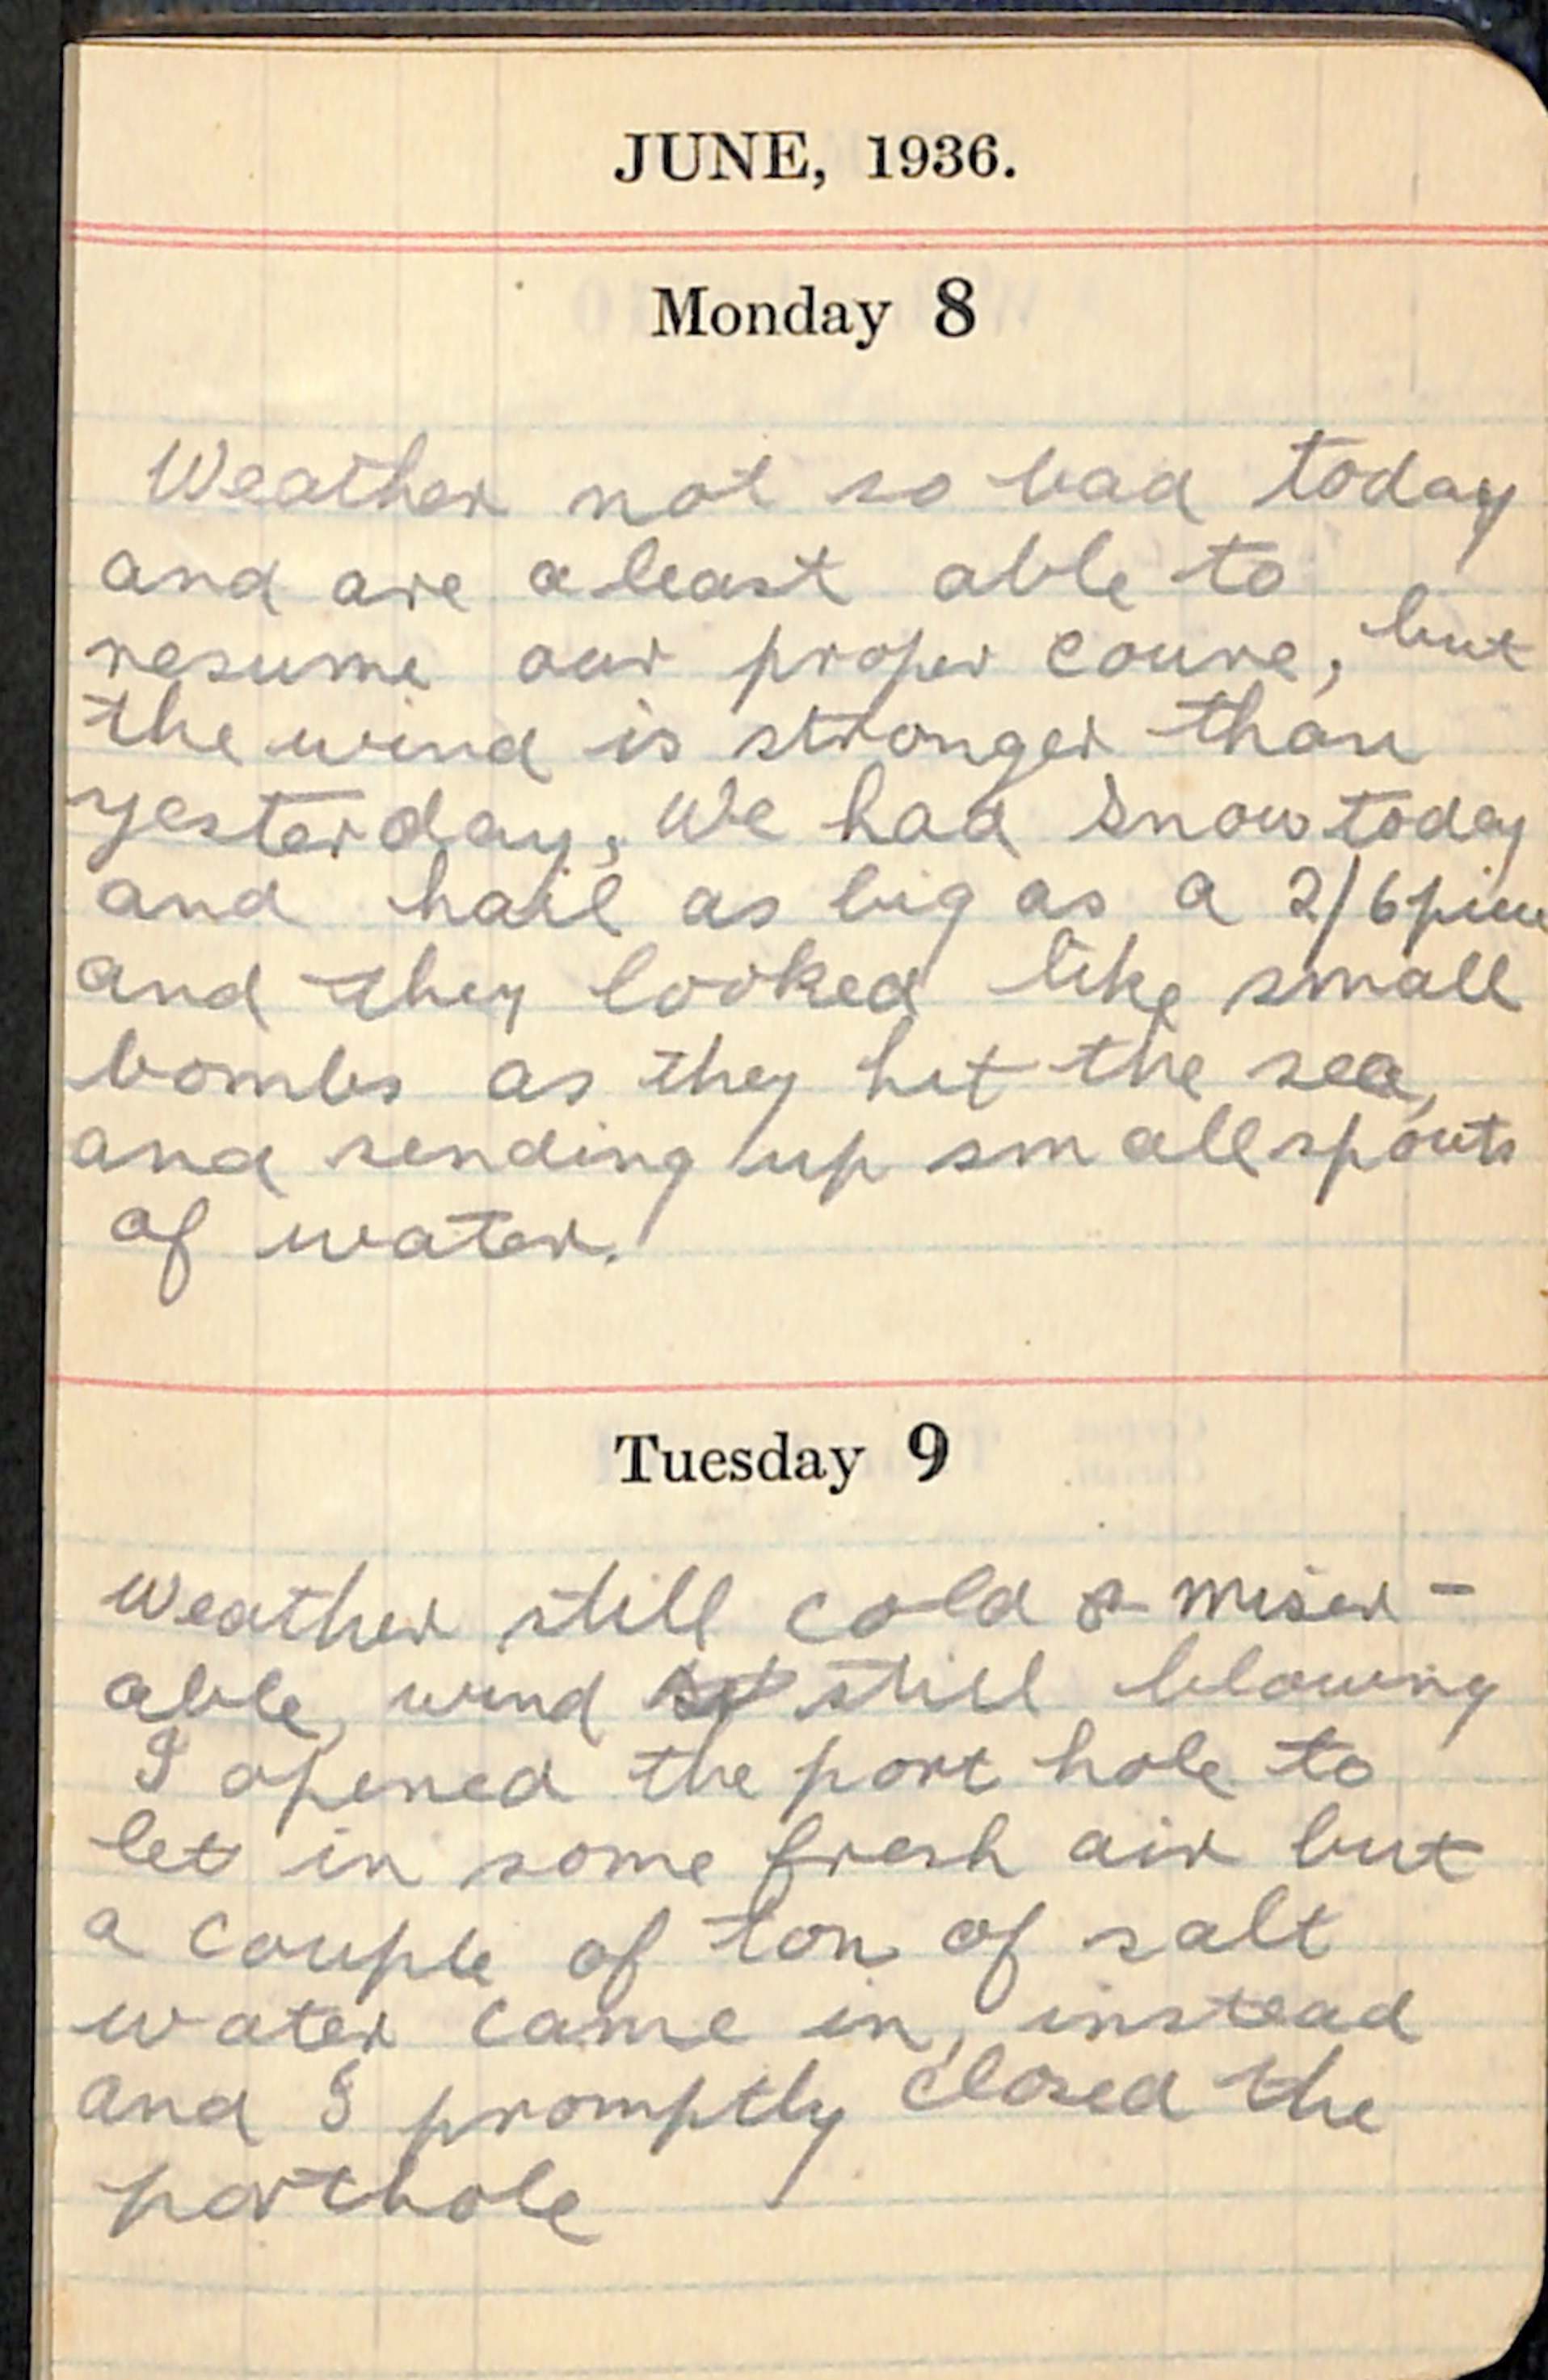 JUNE, 1936.
Monday 8
Weather not so bad today
and are aleast able to
resume our proper course, but
the wind is stronger than
yesterday, We had snow today
and hail as big as a 2/6 piece
and they looked like small
bombs as they hit the sea,
and sending up small spouts
of water.
Tuesday 9
Weather still cold & miser-
able, wind still blowing
I opened the port hole to
let in some fresh air but
a couple of ton of salt
water came in, instead
and I promptly closed the
porthole